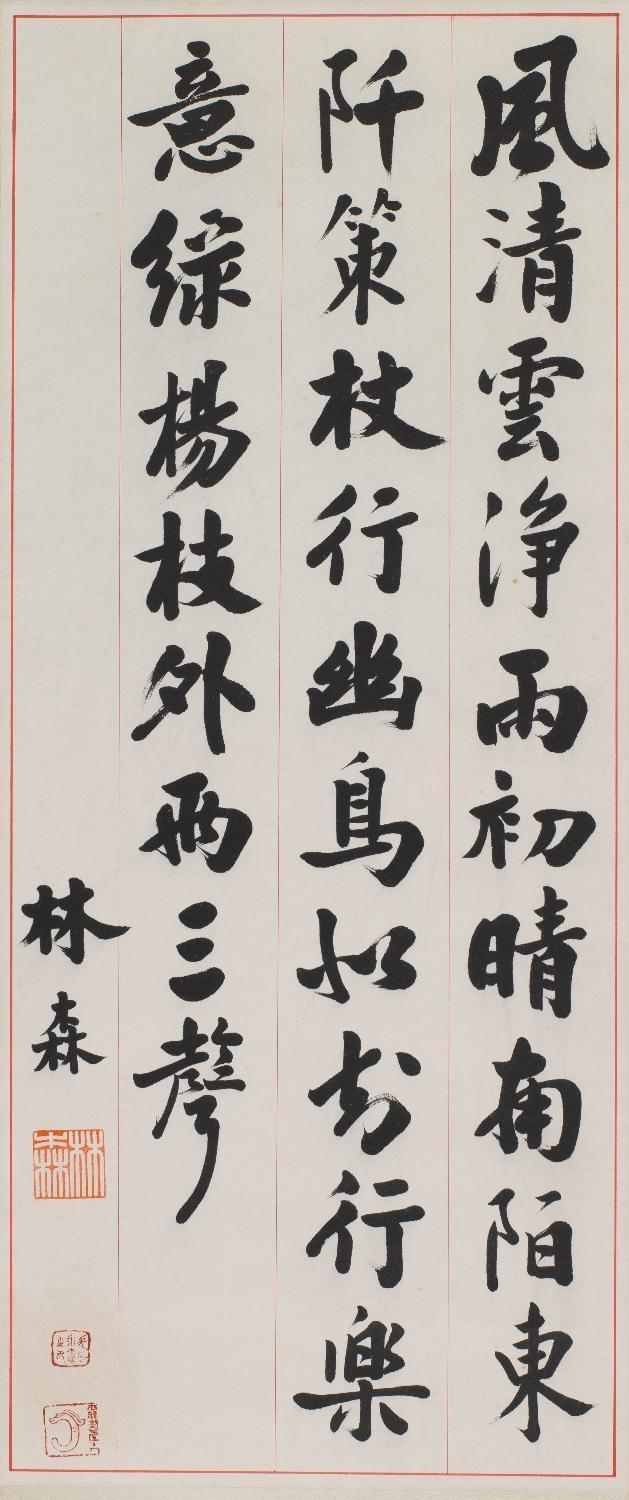 風清雲淨雨初晴南陌東
阡策杖行幽鳥似知行樂
意綠楊枝外兩三聲
林森
林森